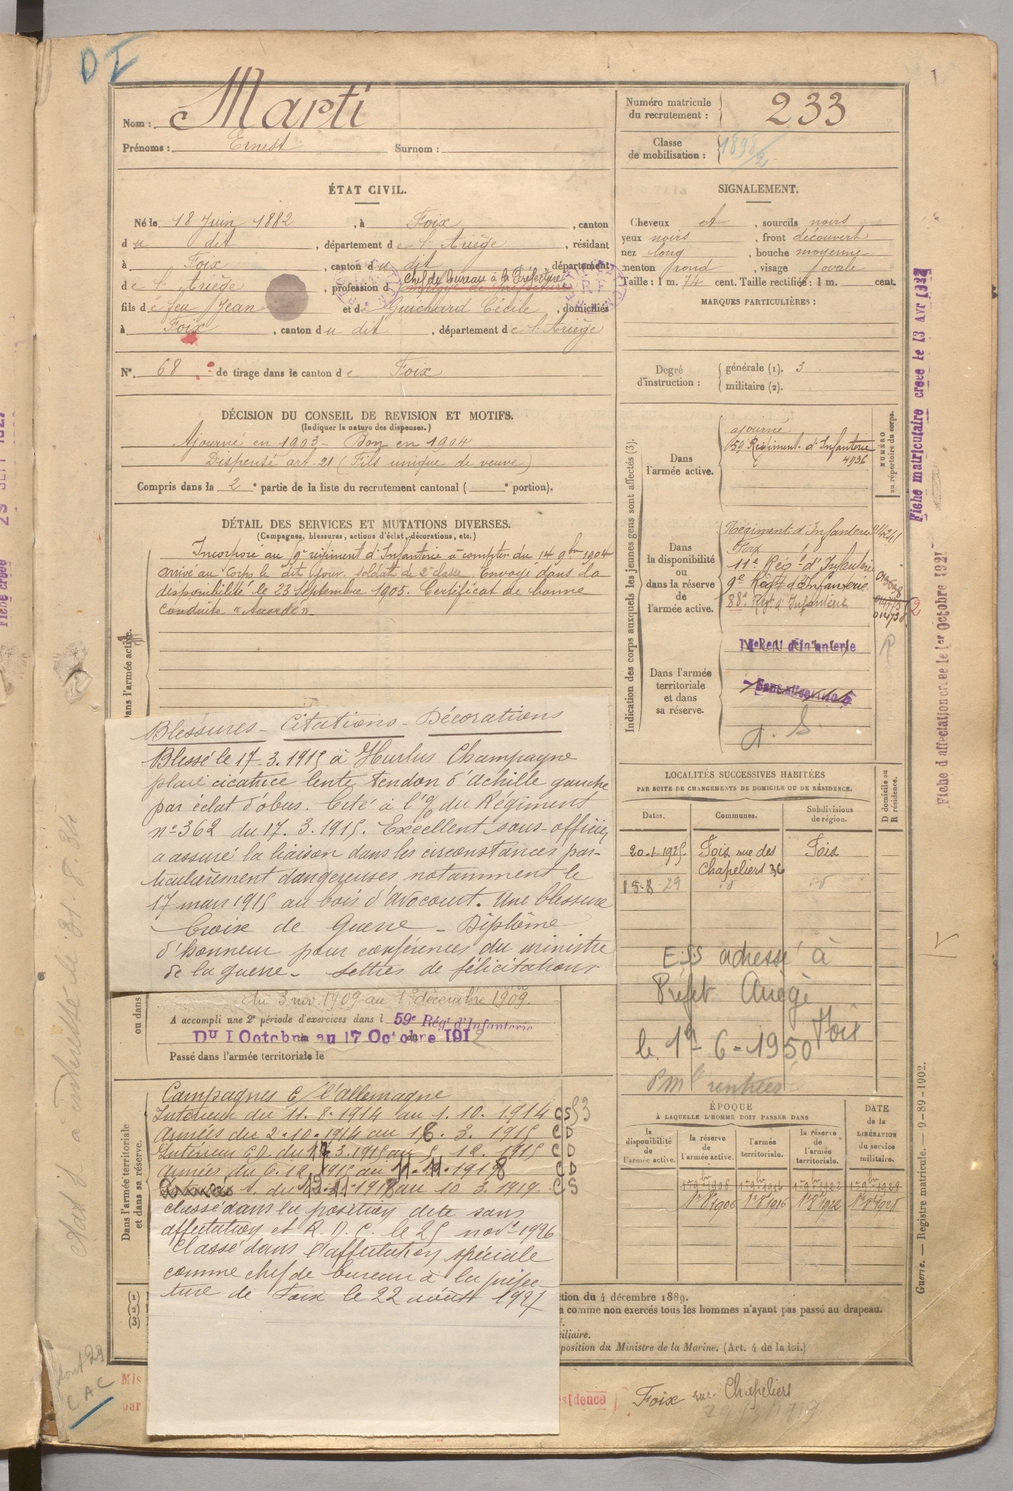 DI
Nom : Marti
Prénoms : Ernest Surnom :
Numéro matricule du recrutement : 233
Classe de mobilisation :
ÉTAT CIVIL.
Né le 18 Juin 1882, à Foix, canton
du dit, département de l'Ariège, résidant
à Foix, canton du dit, département
de l'Ariège, profession de Chef de bureau à la Préfecture
fils de feu Jean et de Guichard Cécile, domiciliés
à Foix, canton du dit, département de l'Ariège
N° 68 de tirage dans le canton de Foix
SIGNALEMENT.
Cheveux et, sourcils noirs
yeux noirs, front découvert
nez long, bouche moyenne
menton rond, visage ovale
Taille : 1 m. 74 cent. Taille rectifiée : 1 m. cent.
MARQUES PARTICULIÈRES :
Degré d'instruction : générale (1). 3
militaire (2).
DÉCISION DU CONSEIL DE REVISION ET MOTIFS.
(Indiquer la nature des dispenses.)
Ajourné en 1903 - Bon en 1904
Dispensé art. 21 (Fils unique de veuve)
Compris dans la 2e partie de la liste du recrutement cantonal ( e portion).
DÉTAIL DES SERVICES ET MUTATIONS DIVERSES.
(Campagnes, blessures, actions d'éclat, décorations, etc.)
Incorporé au 9e régiment d'Infanterie à compter du 14 9bre 1904
arrivé au Corps le dit jour. soldat de 2e classe. Envoyé dans la
disponibilité le 23 Septembre 1905. Certificat de bonne
conduite "Accordé".
Blessures - Citations - Décorations
Blessé le 17.3.1915 à Hurlus Champagne
plaie cicatrice lente, tendon d'Achille gauche
par éclat d'obus. Cité à l'o/ du Régiment
n° 362 du 17.3.1915. Excellent sous-officier
a assuré la liaison dans les circonstances par-
ticulièrement dangereuses notamment le
17 mars 1915 au bois d'avocourt. Une blessure
Croix de Guerre - Diplôme
d'honneur pour conférences du ministre
de la guerre - lettres de félicitations
du 3 nov. 1909 au 1er décembre 1909.
A accompli une 2e période d'exercices dans l 59e Rég. d'Infanterie
Du 1 Octobre au 17 Octobre 1912
Passé dans l'armée territoriale le
Dans l'armée active.
ou dans
Dans l'armée territoriale et dans sa réserve.
Campagnes C/ l'allemagne
Intérieur du 11.8.1914 au 1.10.1914 CS
Armées du 2.10.1914 au 18.3.1915 CD
Intérieur C.D. du 3.1915 au 5.12.1915 CD
Armées du 6.12.1915 au 11.11.1918 CD
du 12.11.1918 au 10.3.1919. CS
Classé dans la position dite sans
affectation et R.D.C. le 25 nov. 1926
Classé dans l'affectation spéciale
comme chef de bureau à la préfec-
ture de Foix le 22 août 1927
Indication des corps auxquels les jeunes gens sont affectés (3).
NUMÉRO au répertoire du corps.
Dans l'armée active.
ajourné
59 Régiment d'Infanterie
4936
Dans la disponibilité ou dans la réserve de l'armée active.
Régiment d'Infanterie
Foix
11e Rég. d'Infanterie
9e Régt d'Infanterie
88e Régt d'Infanterie
Dans l'armée territoriale et dans sa réserve.
Sans affectation
a. S
LOCALITÉS SUCCESSIVES HABITÉES
PAR SUITE DE CHANGEMENTS DE DOMICILE OU DE RÉSIDENCE.
Dates. Communes. Subdivisions de région. D domicile ou R résidence.
20.1.1925 Foix rue des Chapeliers 36 Foix
18-8-29 id id
ESS adressé à
Préfet Ariège
Foix
le 1-6-1950
ÉPOQUE
À LAQUELLE L'HOMME DOIT PASSER DANS
DATE de la LIBÉRATION du service militaire.
la disponibilité de l'armée active. la réserve de l'armée active. l'armée territoriale. la réserve de l'armée territoriale.
tion du 4 décembre 1889.
comme non exercés tous les hommes n'ayant pas passé au drapeau.
xiliaire.
position du Ministre de la Marine. (Art. 4 de la loi.)
Mis
par
sidence
Foix rue Chapeliers
Fiche matriculaire créée le 13 Avr 1932
Fiche d'affectation créée le 1er Octobre 1921
Guerre. — Registre matricule. — 9-89-1902.
(1)
(2)
(3)
CAC